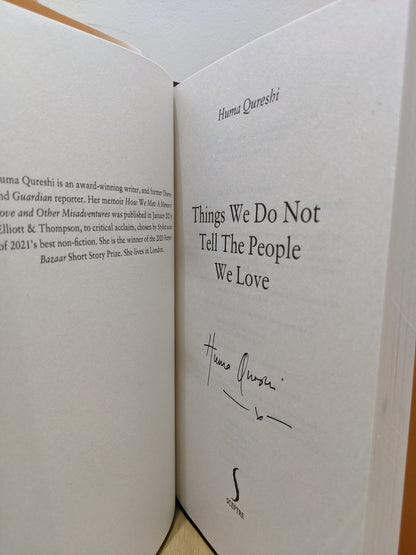 uma Qureshi is an award-winning writer, and former Obser
nd Guardian reporter. Her memoir How We Met: A Memoir
ove and Other Misadventures was published in January 202
Elliott & Thompson, to critical acclaim, chosen by Stylist as one
of 2021's best non-fiction. She is the winner of the 2020 Harper's
Bazaar Short Story Prize. She lives in London.
Huma Qureshi
Things We Do Not
Tell The People
We Love
Huma Qureshi
SCEPTRE